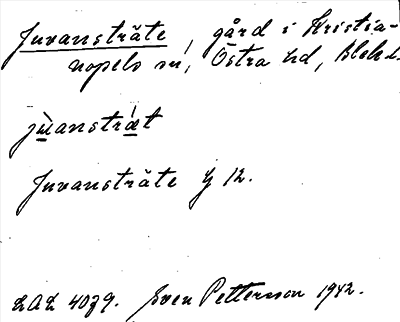 Juvansträte, gård i Kristia-
nopels sn, Östra hd, Blek.
jùanstrǽt
Juvansträte G 12.
LAL 4079. Sven Pettersson 1942.